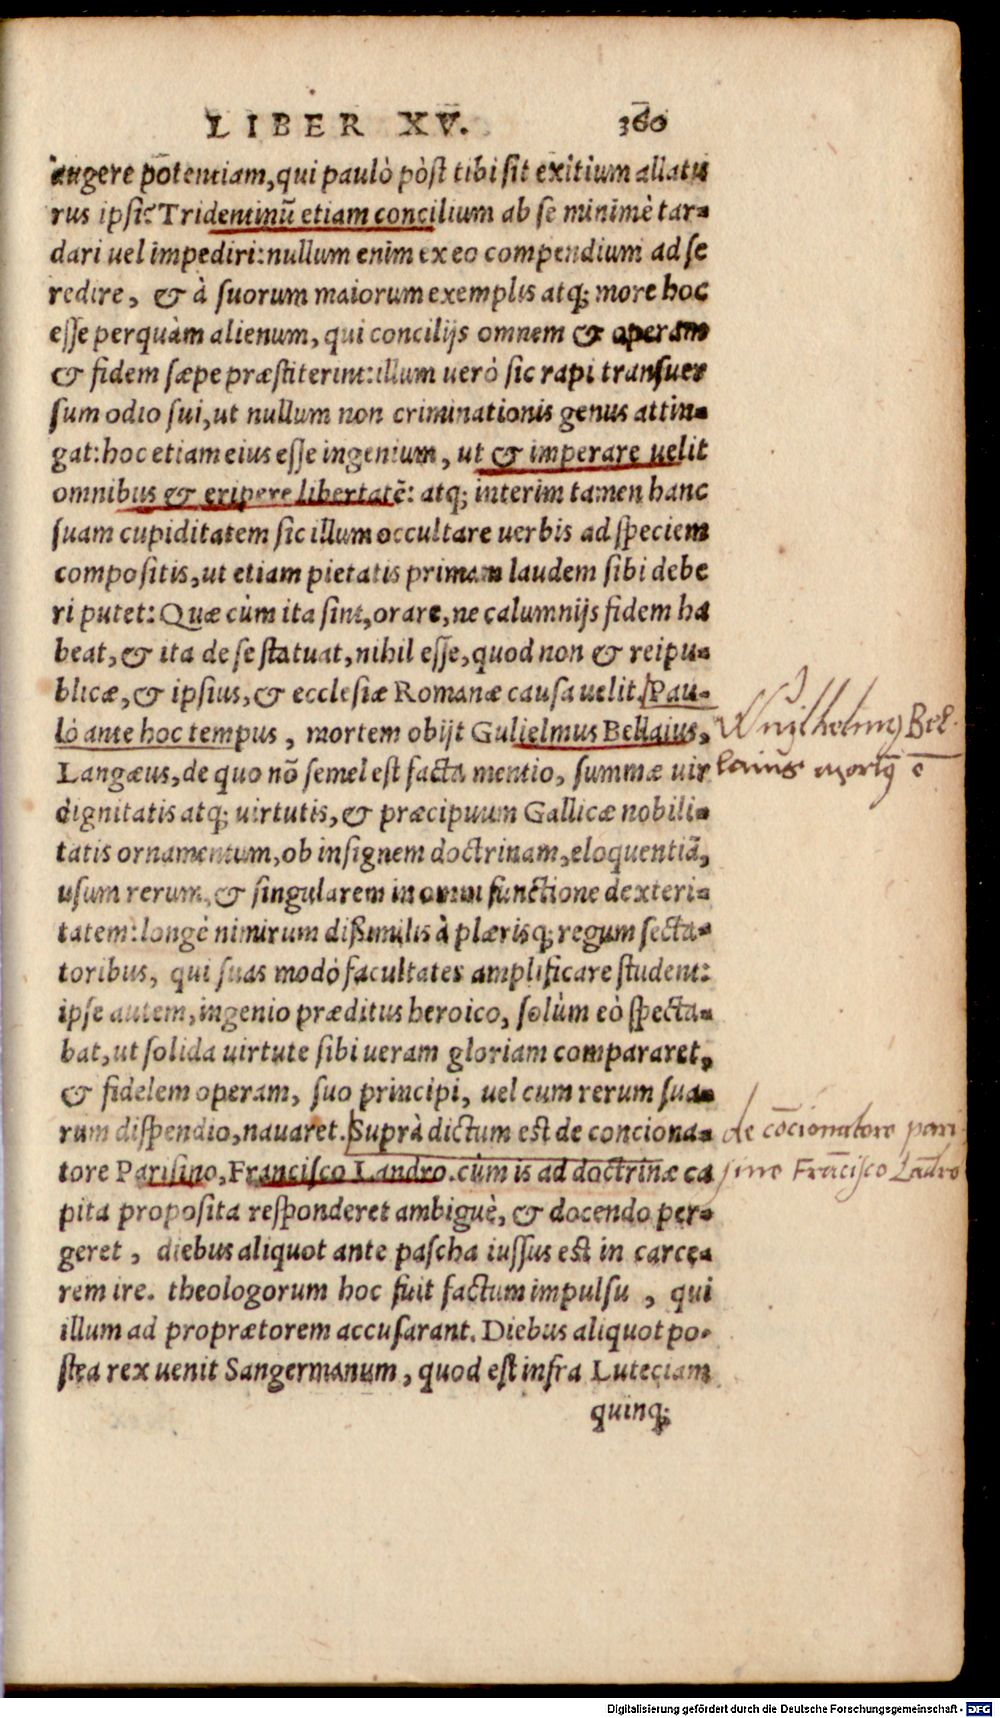 LIBER XV. 360
augere potentiam, qui paulò pòst tibi sit exitium allatu
rus ipsi? Tridentinũ etiam concilium ab se minimè tar-
dari uel impediri: nullum enim ex eo compendium ad se
redire, & à suorum maiorum exemplis atq; more hoc
esse perquàm alienum, qui concilijs omnem & operam
& fidem sæpe præstiterint: illum uerò sic rapi transuer
sum odio sui, ut nullum non criminationis genus attin-
gat: hoc etiam eius esse ingenium, ut & imperare uelit
omnibus & eripere libertatẽ: atq; interim tamen hanc
suam cupiditatem sic illum occultare uerbis ad speciem
compositis, ut etiam pietatis primam laudem sibi debe
ri putet: Quæ cùm ita sint, orare, ne calumnijs fidem ha
beat, & ita de se statuat, nihil esse, quod non & reipu-
blicæ, & ipsius, & ecclesiæ Romanæ causa uelit. Pau-
lò ante hoc tempus, mortem obijt Gulielmus Bellaius,
Langæus, de quo nõ semel est facta mentio, summæ uir
dignitatis atq; uirtutis, & præcipuum Gallicæ nobili-
tatis ornamentum, ob insignem doctrinam, eloquentiã,
usum rerum, & singularem in omni functione dexteri-
tatem: longè nimirum dißimilis à plærisq; regum secta-
toribus, qui suas modò facultates amplificare student:
ipse autem, ingenio præditus heroico, solùm eò specta-
bat, ut solida uirtute sibi ueram gloriam compararet,
& fidelem operam, suo principi, uel cum rerum sua-
rum dispendio, nauaret. Suprà dictum est de conciona-
tore Parisino, Francisco Landro. cùm is ad doctrinæ ca
pita proposita responderet ambiguè, & docendo per-
geret, diebus aliquot ante pascha iussus est in carce-
rem ire. theologorum hoc fuit factum impulsu, qui
illum ad proprætorem accusarant. Diebus aliquot po-
stea rex uenit Sangermanum, quod est infra Luteciam
quinq;
Wilhelmus Bel-
laius mortuus ē
de cōcionatore pari
sino Frācisco Lādro
Digitalisierung gefördert durch die Deutsche Forschungsgemeinschaft - DFG